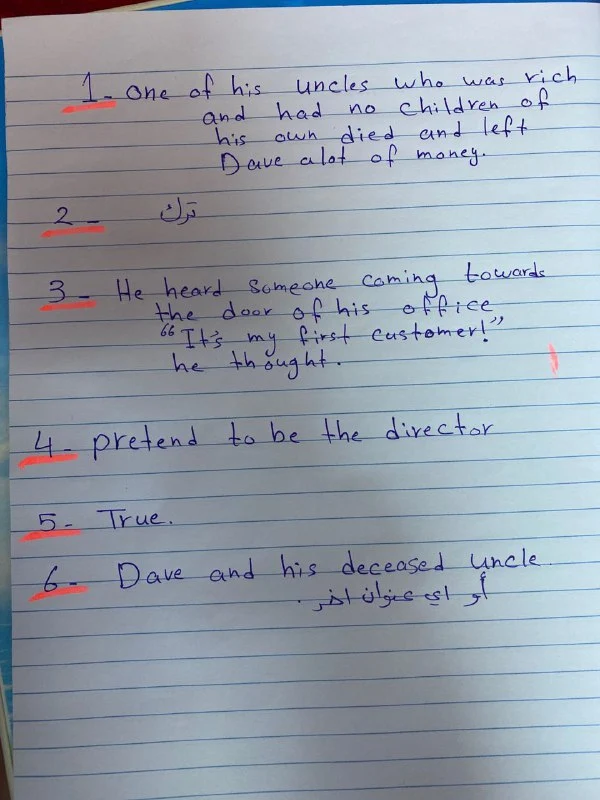 1- One of his uncles who was rich
and had no children of
his own died and left
Dave a lot of money.
2- ترك
3- He heard someone coming towards
the door of his office
"It's my first customer!"
he thought.
4- pretend to be the director
5- True.
6- Dave and his deceased uncle.
أو اي عنوان اخر.